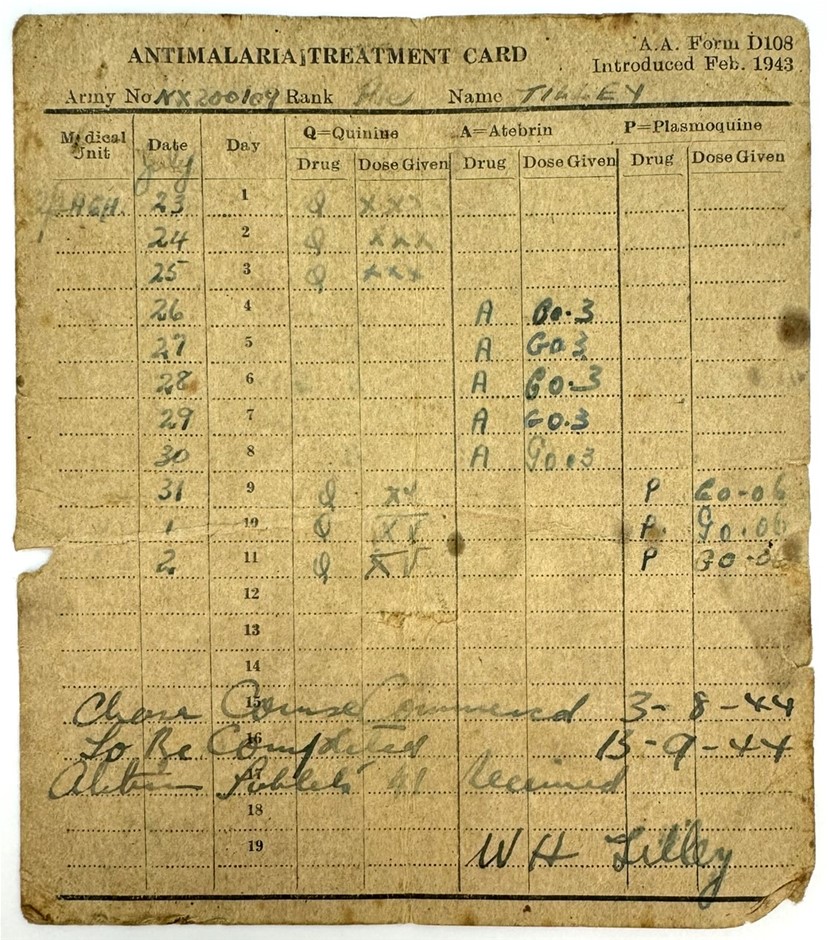 ANTIMALARIA TREATMENT CARD
A.A. Form D108
Introduced Feb. 1943
Army No NX200109 Rank Pte Name TILLEY
Q=Quinine A=Atebrin P=Plasmoquine
Medical Unit Date Day Drug Dose Given Drug Dose Given Drug Dose Given
July
A.G.H. 23 1 Q XXX
24 2 Q XXX
25 3 Q XXX
26 4 A G0.3
27 5 A G0.3
28 6 A G0.3
29 7 A G0.3
30 8 A G0.3
31 9 Q XV P G0.06
1 10 Q XV P G0.06
2 11 Q XV P G0.06
12
13
14
15 Course Commenced 3-8-44
16 To Be Completed 13-9-44
17 41 Received
18
19 W H Tilley